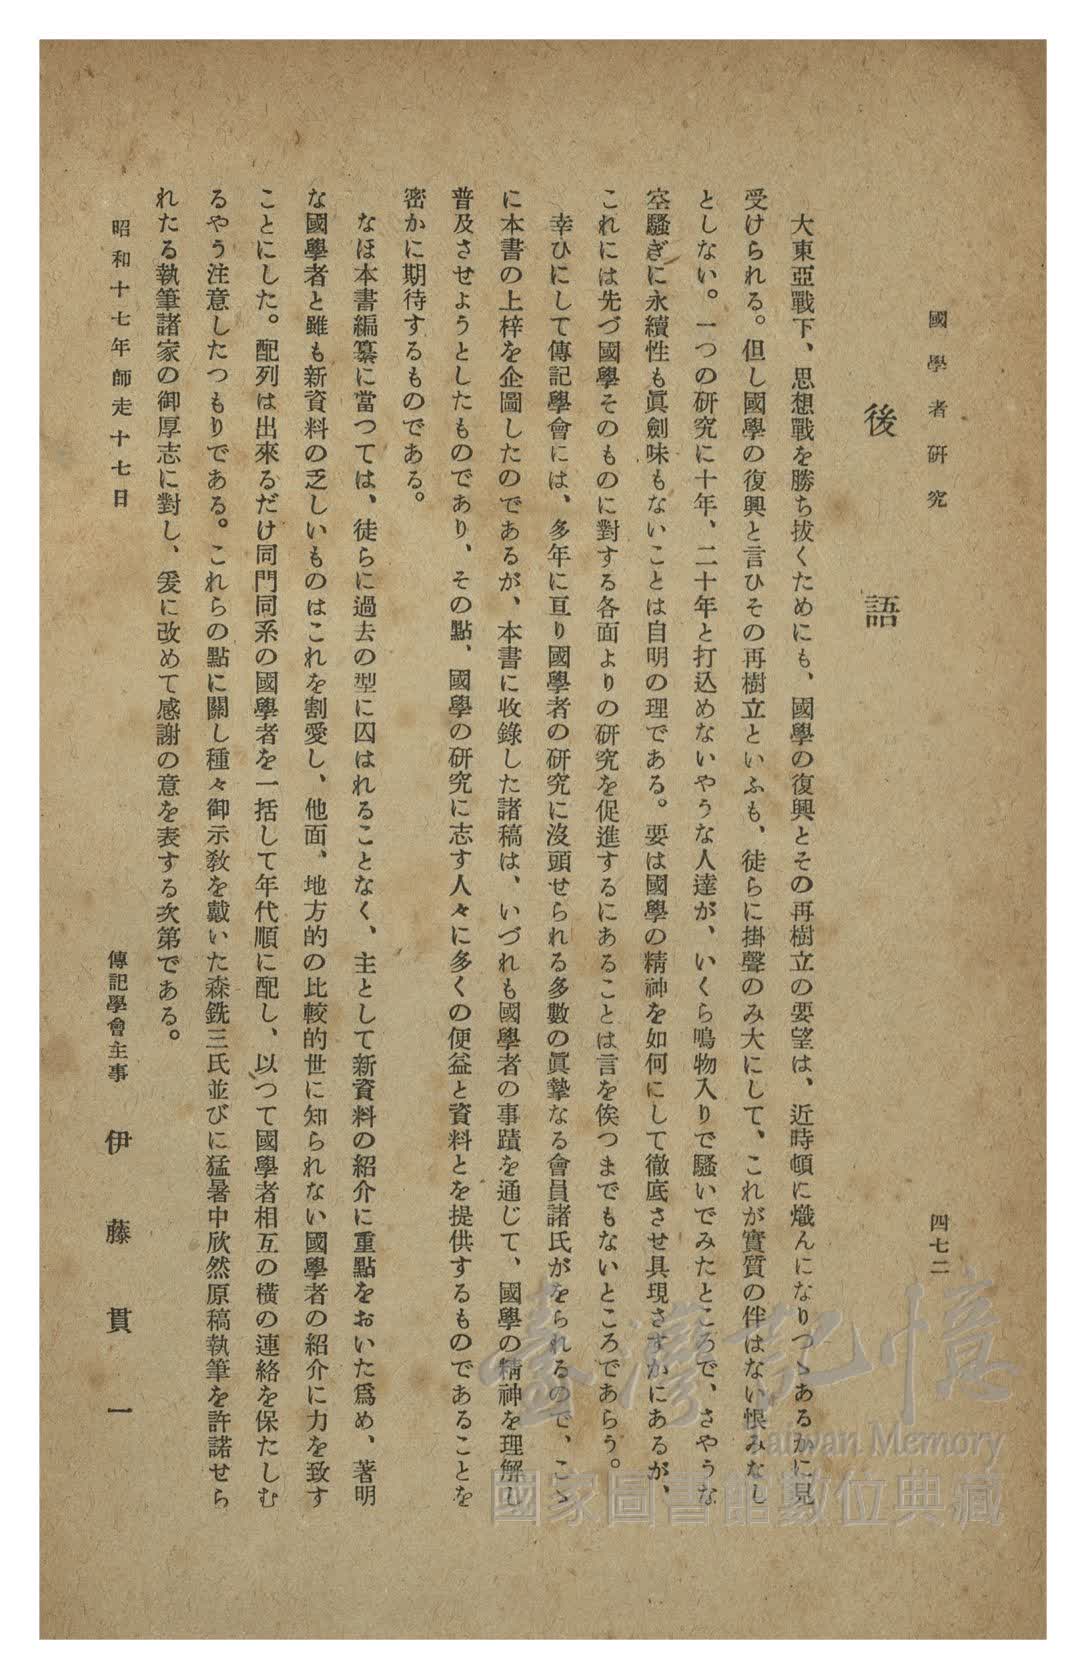 國學者研究
四七二
後語
大東亞戰下、思想戰を勝ち拔くためにも、國學の復興とその再樹立の要望は、近時頓に熾んになりつゝあるかに見
受けられる。但し國學の復興と言ひその再樹立といふも、徒らに掛聲のみ大にして、これが實質の伴はない恨みなし
としない。一つの研究に十年、二十年と打込めないやうな人達が、いくら鳴物入りで騷いでみたところで、さやうな
空騷ぎに永續性も眞劍味もないことは自明の理である。要は國學の精神を如何にして徹底させ具現さすかにあるが、
これには先づ國學そのものに對する各面よりの研究を促進するにあることは言を俟つまでもないところであらう。
幸ひにして傳記學會には、多年に亙り國學者の研究に沒頭せられる多數の眞摯なる會員諸氏がをられるので、こゝ
に本書の上梓を企圖したのであるが、本書に收錄した諸稿は、いづれも國學者の事蹟を通じて、國學の精神を理解し
普及させようとしたものであり、その點、國學の研究に志す人々に多くの便益と資料とを提供するものであることを
密かに期待するものである。
なほ本書編纂に當つては、徒らに過去の型に囚はれることなく、主として新資料の紹介に重點をおいた爲め、著明
な國學者と雖も新資料の乏しいものはこれを割愛し、他面、地方的の比較的世に知られない國學者の紹介に力を致す
ことにした。配列は出來るだけ同門同系の國學者を一括して年代順に配し、以つて國學者相互の橫の連絡を保たしむ
るやう注意したつもりである。これらの點に關し種々御示敎を戴いた森銑三氏並びに猛暑中欣然原稿執筆を許諾せら
れたる執筆諸家の御厚志に對し、爰に改めて感謝の意を表する次第である。
昭和十七年師走十七日
傳記學會主事 伊藤貫一
臺灣記憶
Taiwan Memory
國家圖書館數位典藏